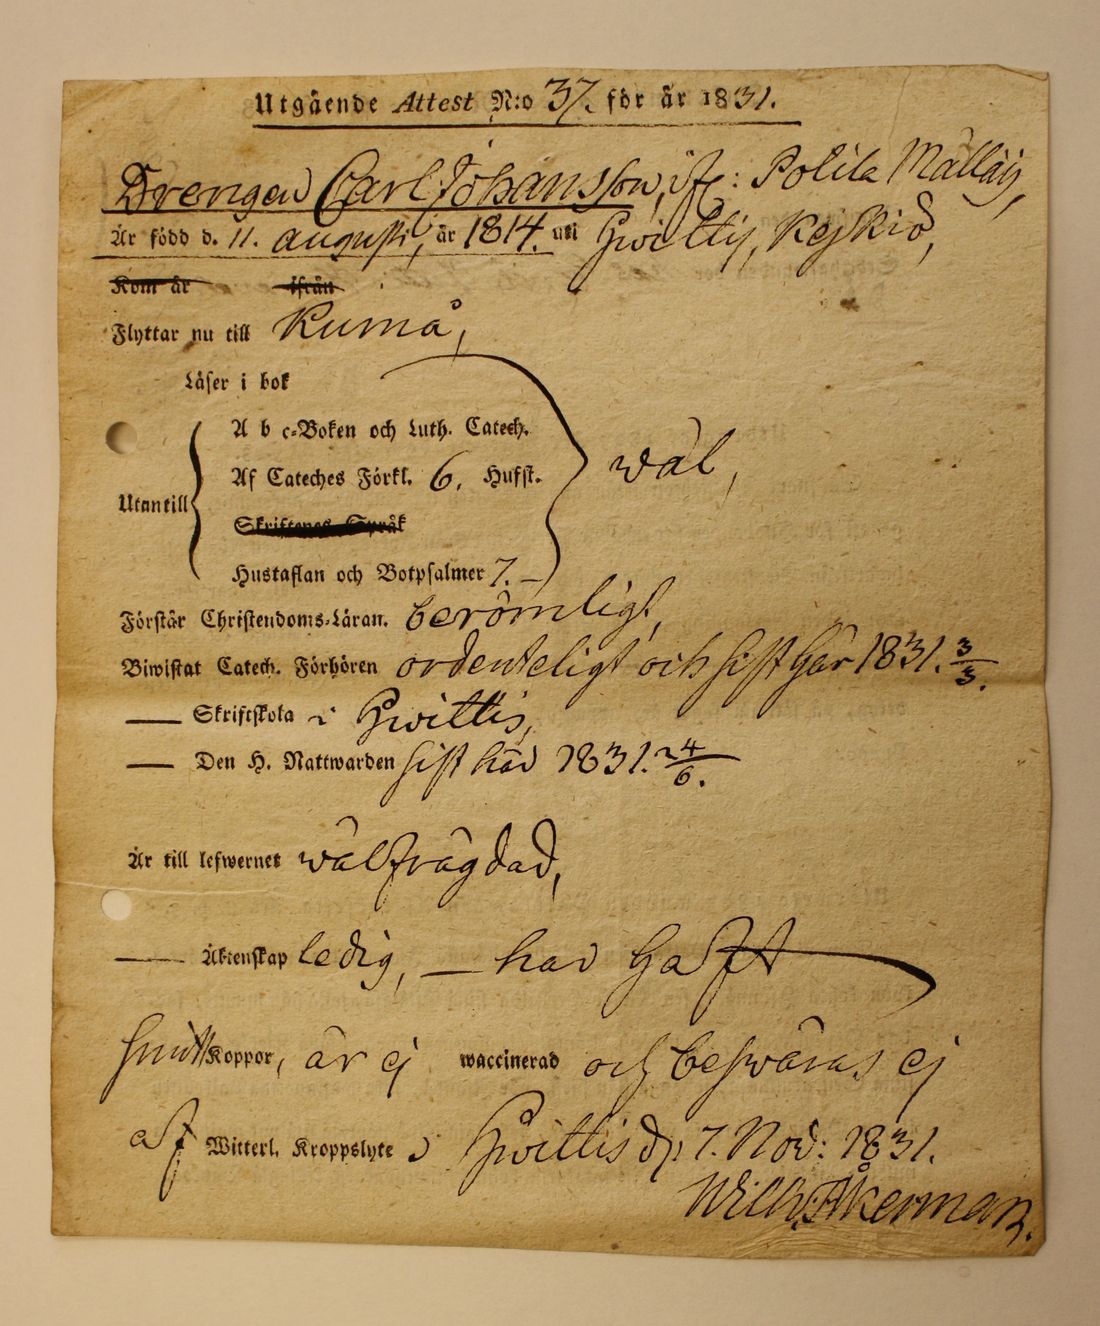 Utgående Attest N:o 37. för år 1831.
Drengen Carl Johansson, ifr: Polila Mälläis,
Är född d. 11. augusti, år 1814. uti Hwittis, Kejkiö,
Kom år ifrån
Flyttar nu till Kumå,
Läser i bok
A b c-Boken och Luth. Catech.
Af Cateches Förkl. 6. Hufst. wäl,
Utantill
Skriftenes Språk
Hustaflan och Botpsalmer 7. —
Förstår Christendoms-Läran. berömligt,
Biwistat Catech. Förhören ordenteligt och sist här 1831. 3/3.
— Skriftskola i Hwittis,
— Den H. Nattwarden sist här 1831. 24/6.
Är till lefwernet wälfrägdad,
— Äktenskap ledig, — har haft
smittKoppor, är ej waccinerad och beswäras ej
af Witterl. Kroppslyte Hwittis d. 7. Nov: 1831.
Wilh. Åkerman.